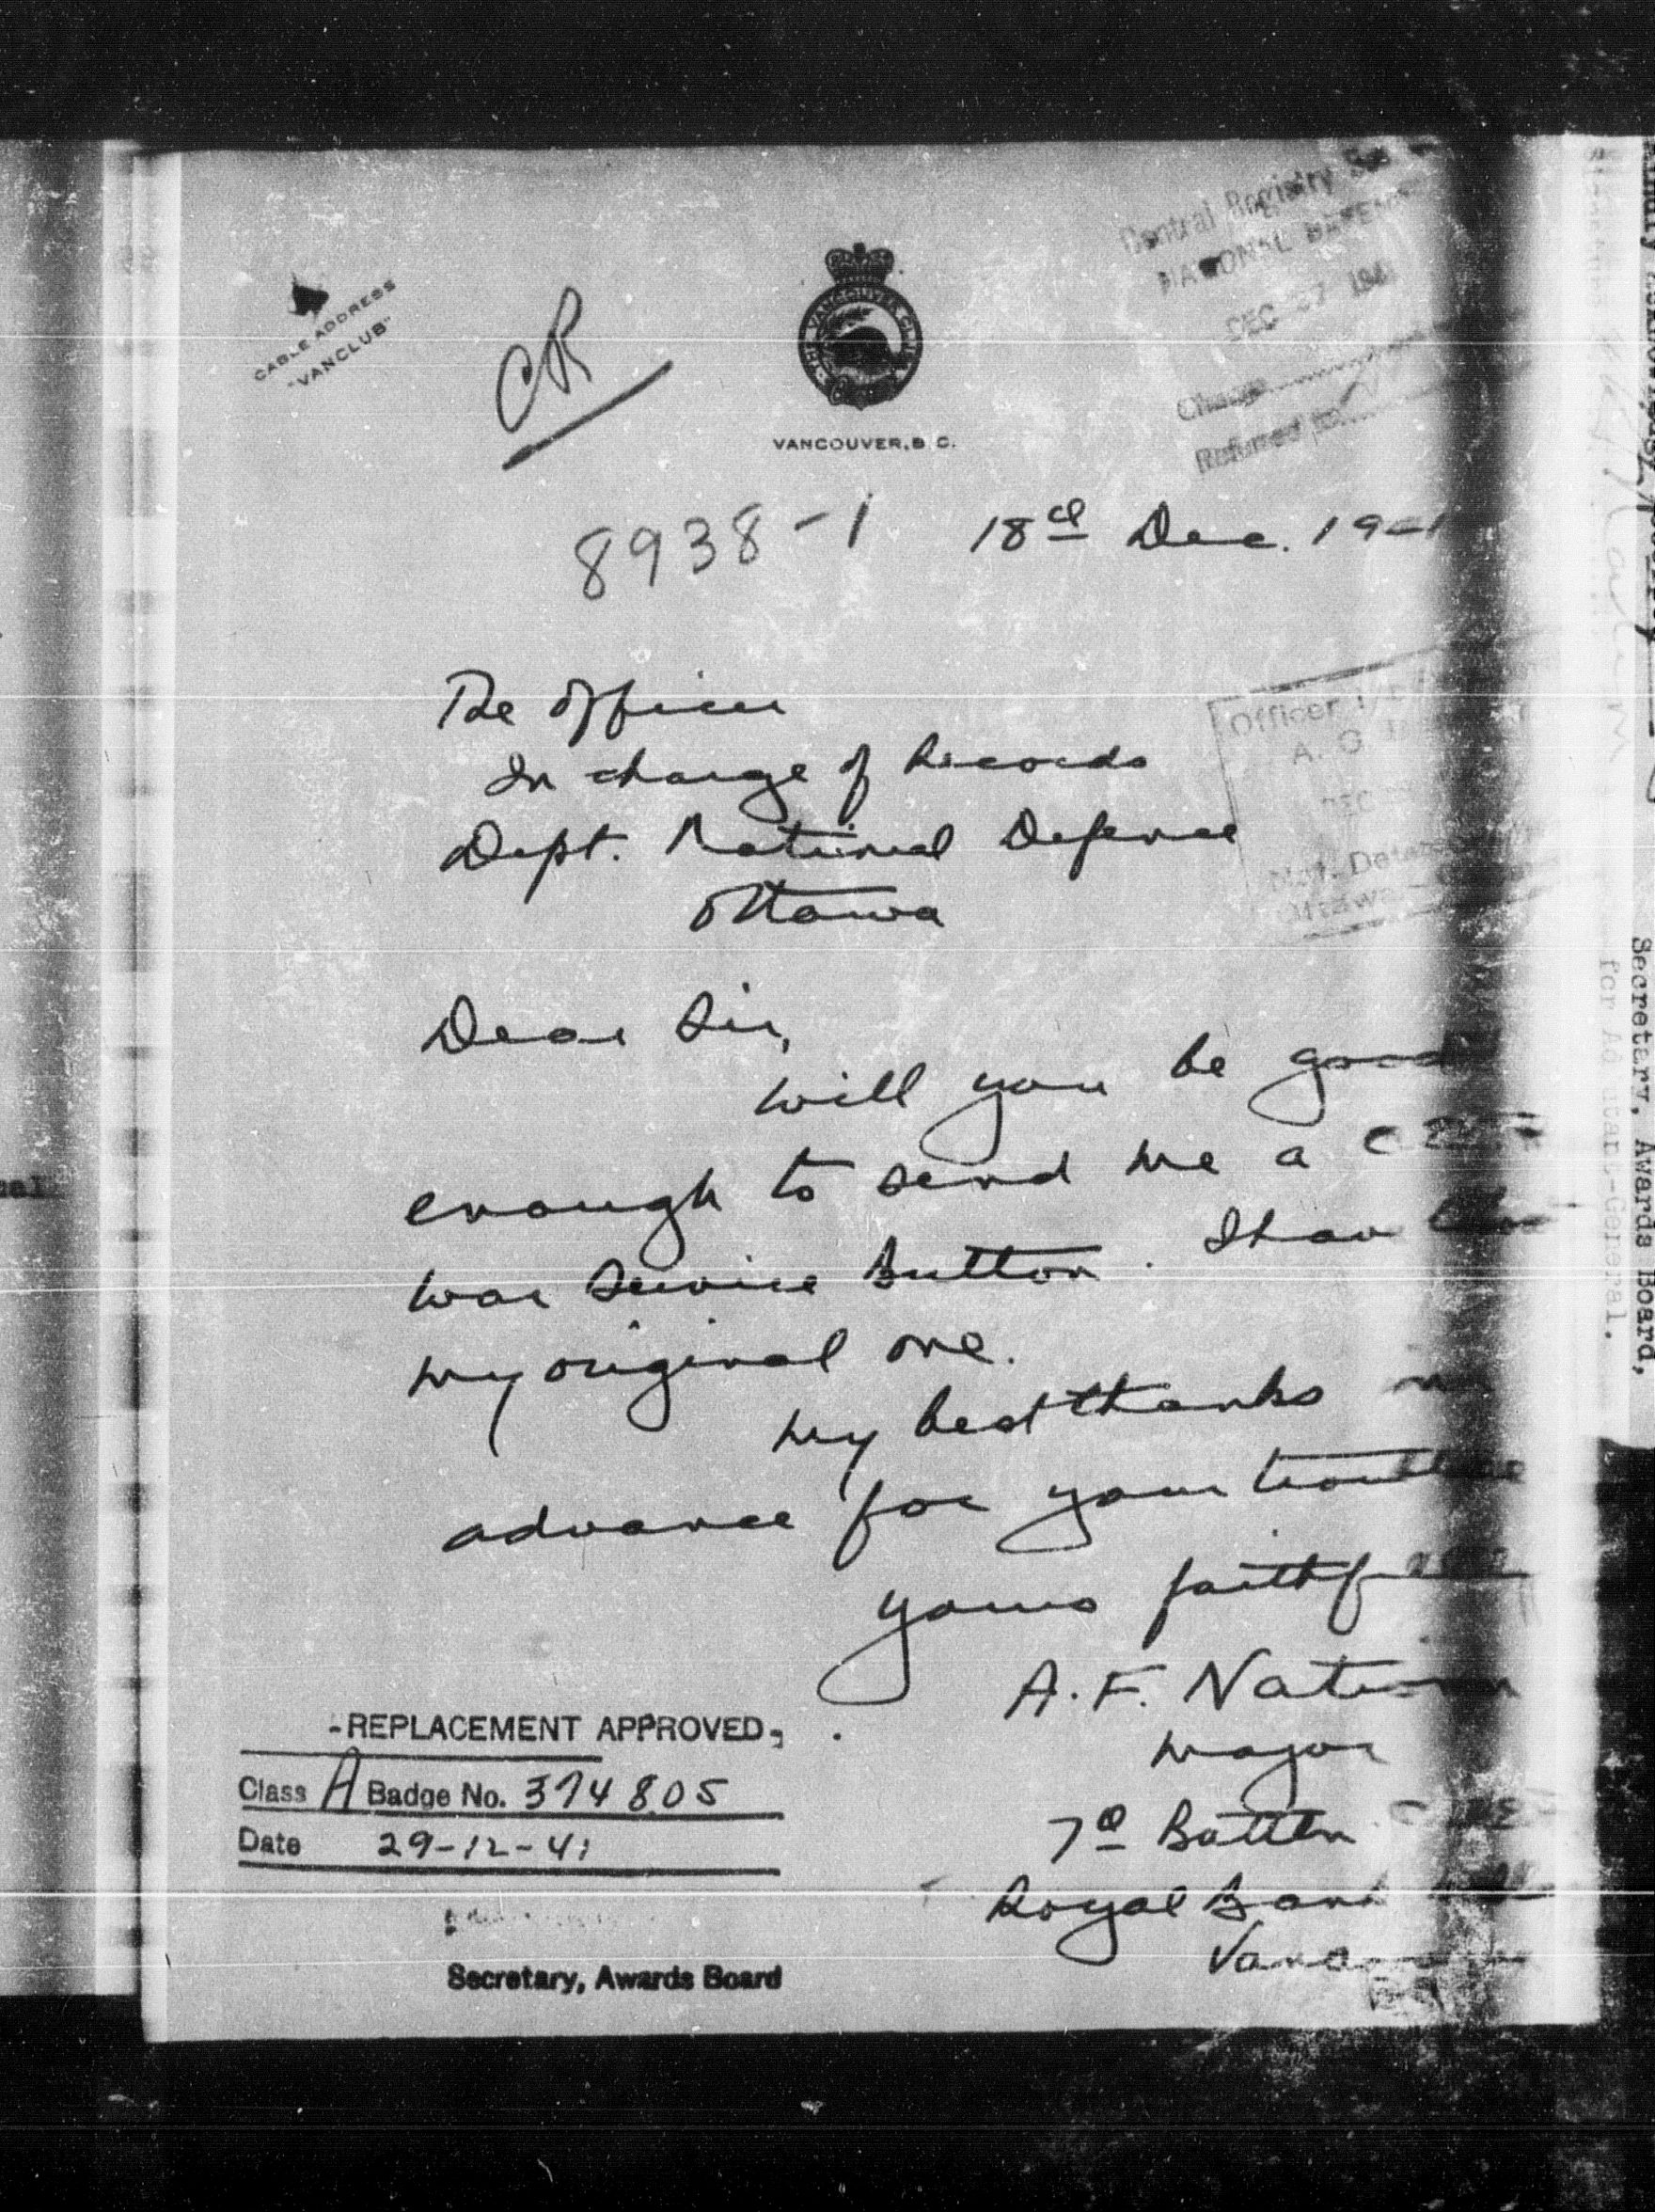 CABLE ADDRESS
"VANCLUB"
CR
THE VANCOUVER CLUB
VANCOUVER, B.C.
Central Registry
NATIONAL
DEC 27 1941
Charge
Referred to
8938-1
18th Dec. 194
Officer
A. G.
DEC
Ottawa
The Officer
In charge of Records
Dept. National Defence
Ottawa
Dear Sir,
will you be good
enough to send me a C.E.F.
war Service Button. I have
my original one.
My best thanks in
advance for your trouble
yours faithfully
A.F. Nation
Major
7th Battln. C.E.F.
Royal Bank
Vancouver
-REPLACEMENT APPROVED-
Class A Badge No. 374805
Date 29-12-41
Secretary, Awards Board
Secretary, Awards Board,
for Adjutant-General.